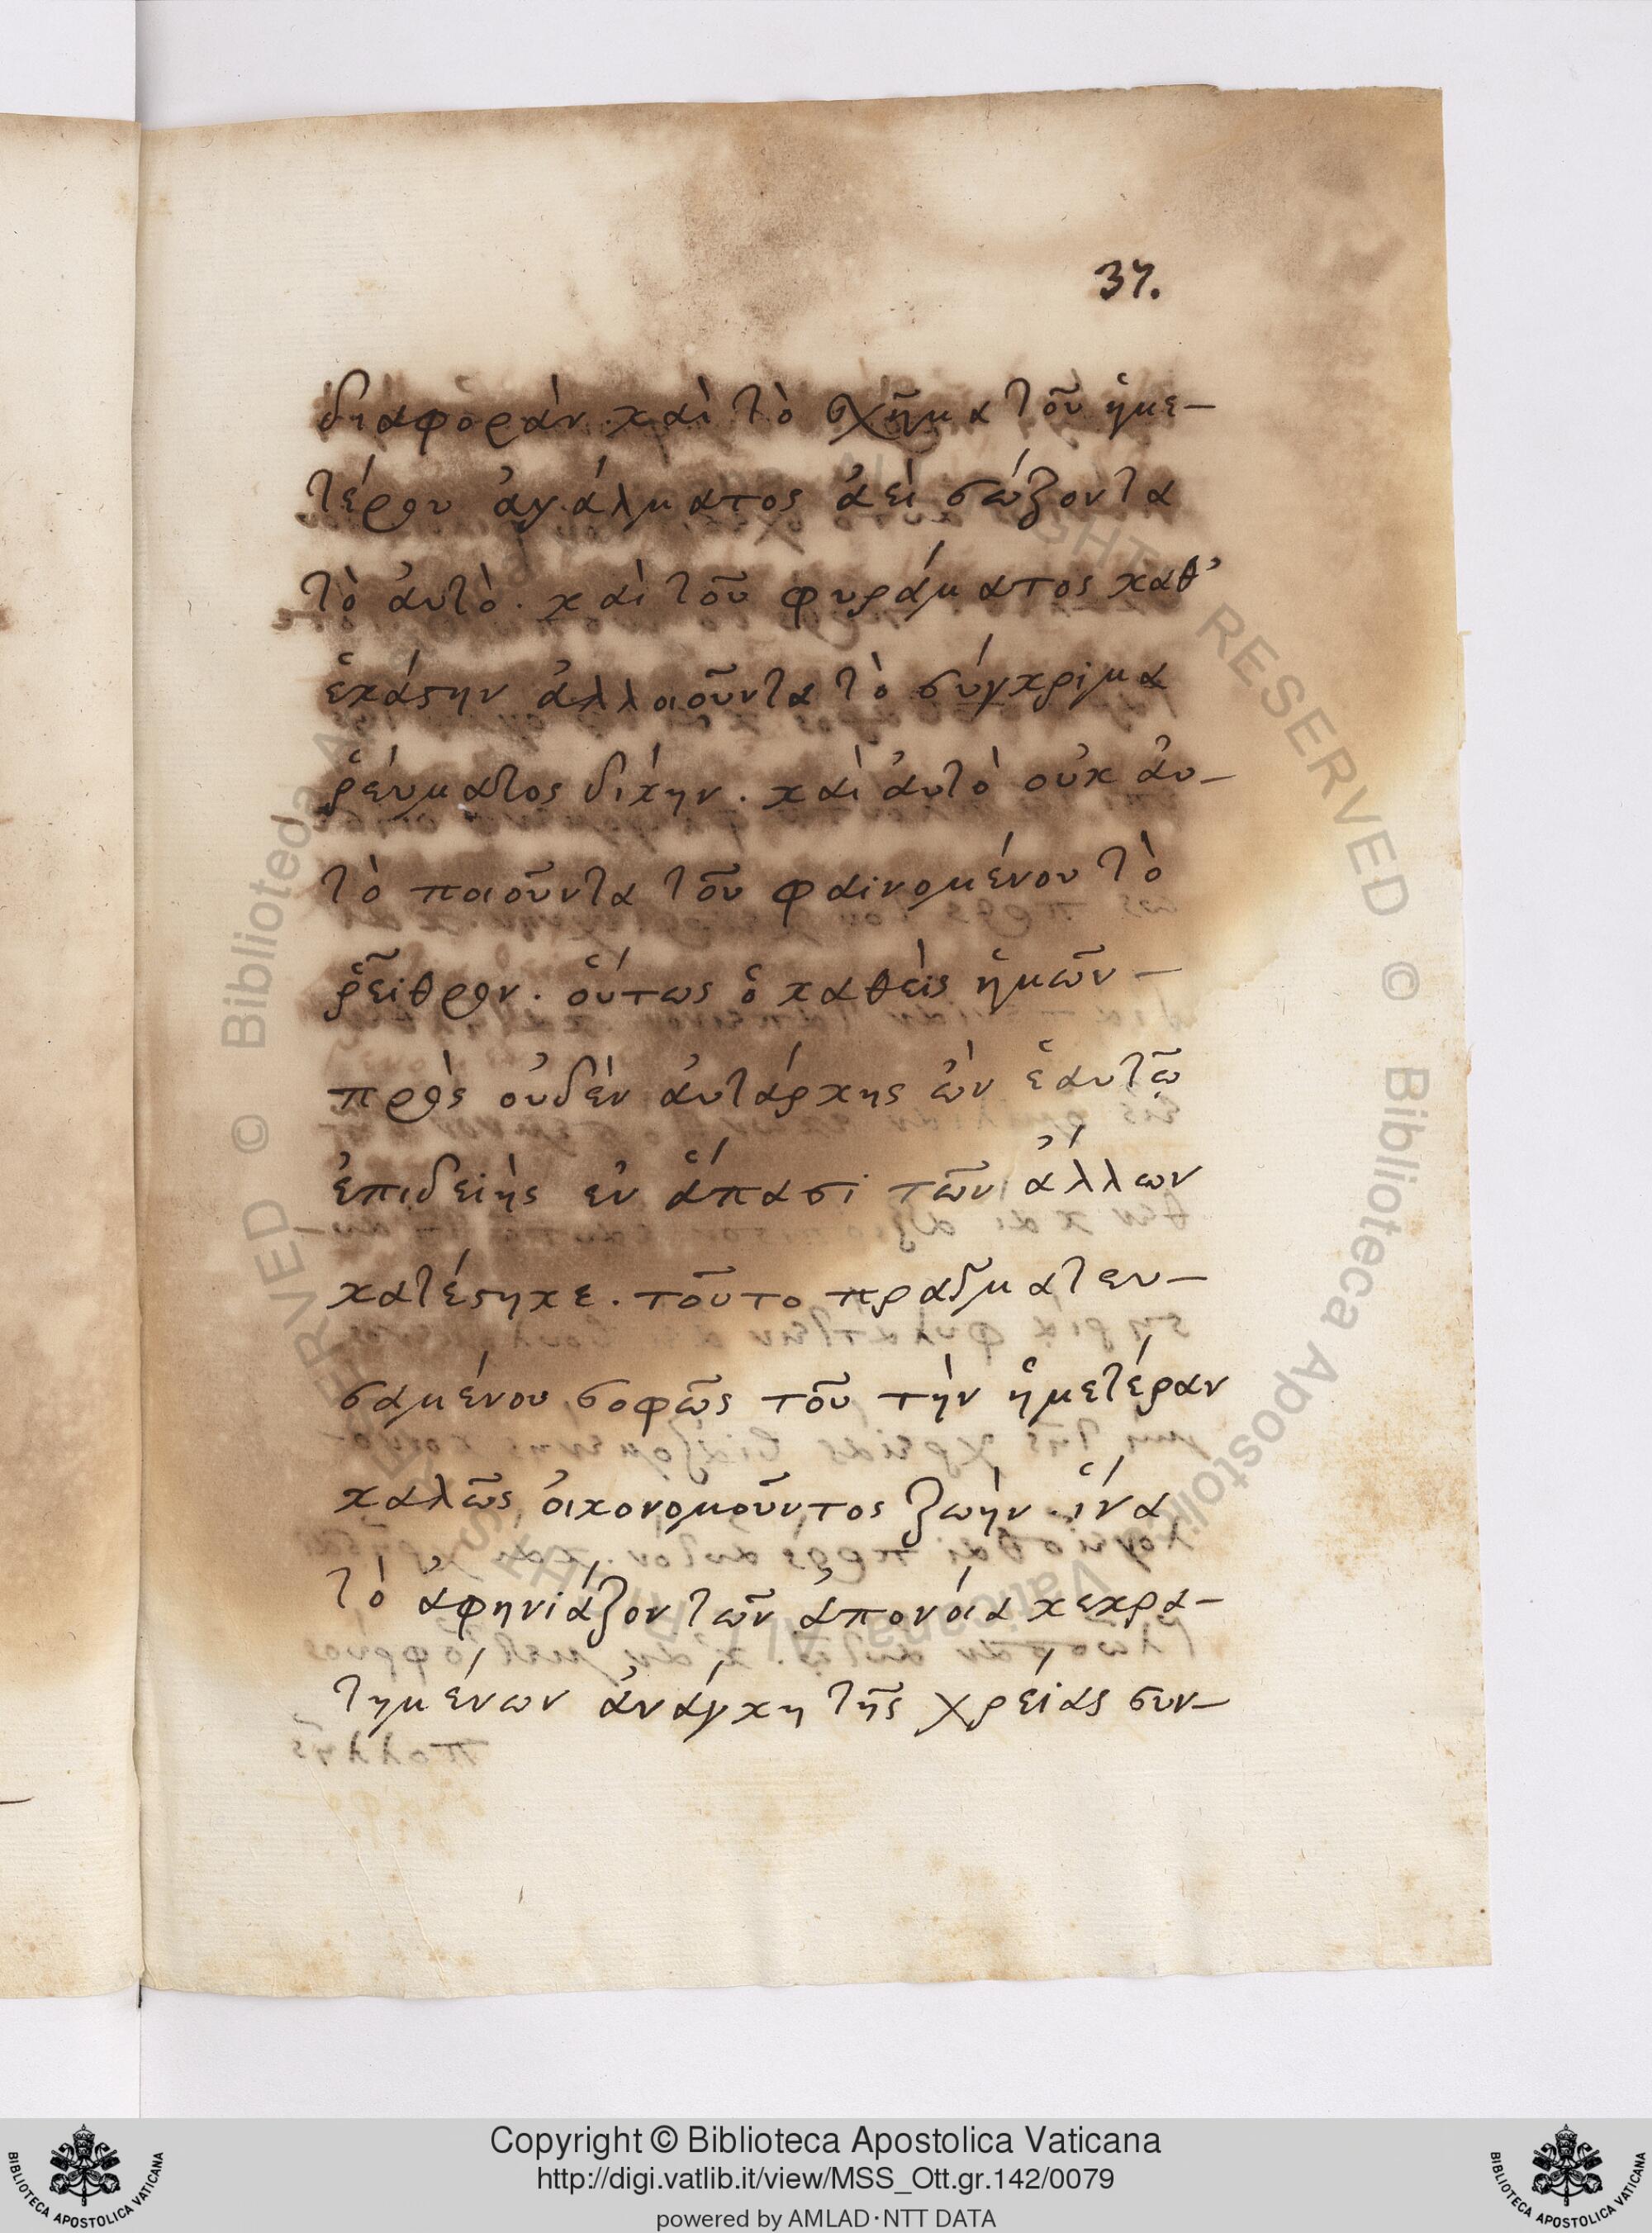 37.
διαφοράν. καὶ τὸ σχῆμα τοῦ ἡμε-
τέρου ἀγάλματος ἀεὶ σώζοντα
τὸ ἀυτὸ. καὶ τοῦ φυράματος καθ'
ἑκάστην ἀλλοιοῦντα τὸ σύγκριμα
ῥέυματος δίκην. καὶ ἀυτὸ οὐκ ἀυ-
τὸ ποιοῦντα τοῦ φαινομένου τὸ
ῥεῖθρον. οὕτως ὁ καθεὶς ἡμῶν-
πρὸς οὐδὲν ἀυτάρκης ὢν ἑαυτῷ
ἐπιδεὴς ἐν ἅπασι τῶν ἄλλων
κατέστηκε. τοῦτο πραγματευ-
σαμένου σοφῶς τοῦ τὴν ἡμετέραν
καλῶς ὀικονομοῦντος ζωὴν ἵνα
τὸ ἀφηνιάζον τῶν ἀπονόια κεκρα-
τημένων ἀνάγκη τῆς χρείας συν-
Copyright © Biblioteca Apostolica Vaticana
http://digi.vatlib.it/view/MSS_Ott.gr.142/0079
powered by AMLAD·NTT DATA
BIBLIOTECA APOSTOLICA VATICANA
BIBLIOTECA APOSTOLICA VATICANA